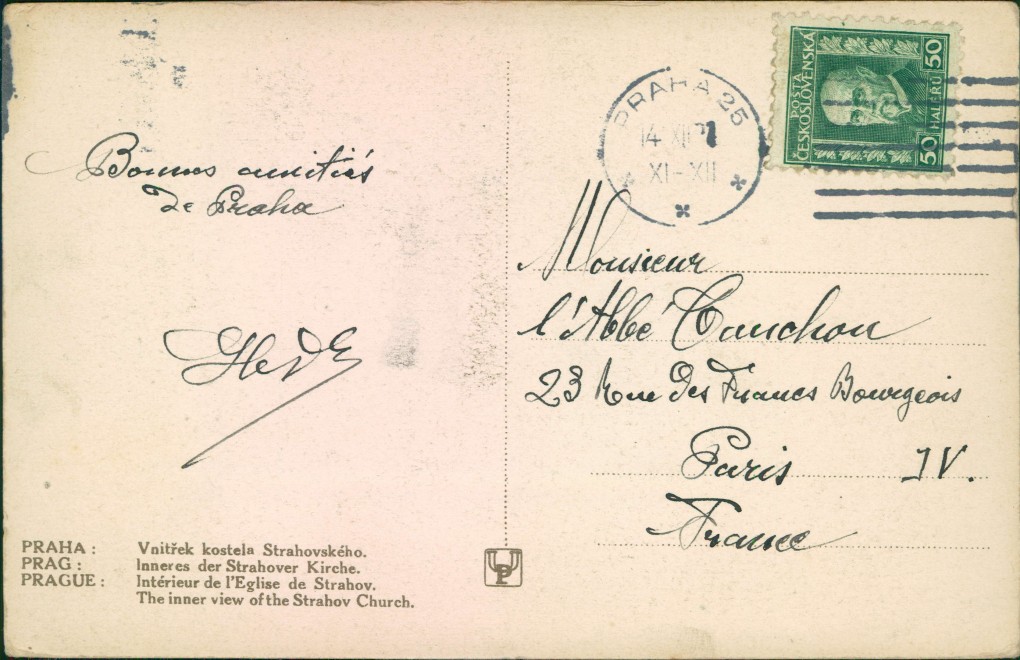 Bonnes amitiés
de Praha
PRAHA: Vnitřek kostela Strahovského.
PRAG: Inneres der Strahover Kirche.
PRAGUE: Intérieur de l'Eglise de Strahov.
The inner view of the Strahov Church.
UP
PRAHA 25
14 XII
XI-XII
POSTA
ČESKOSLOVENSKÁ
50 HALÉRŮ 50
Monsieur
l'Abbé Cauchon
23 Rue Des Francs Bourgeois
Paris IV.
France